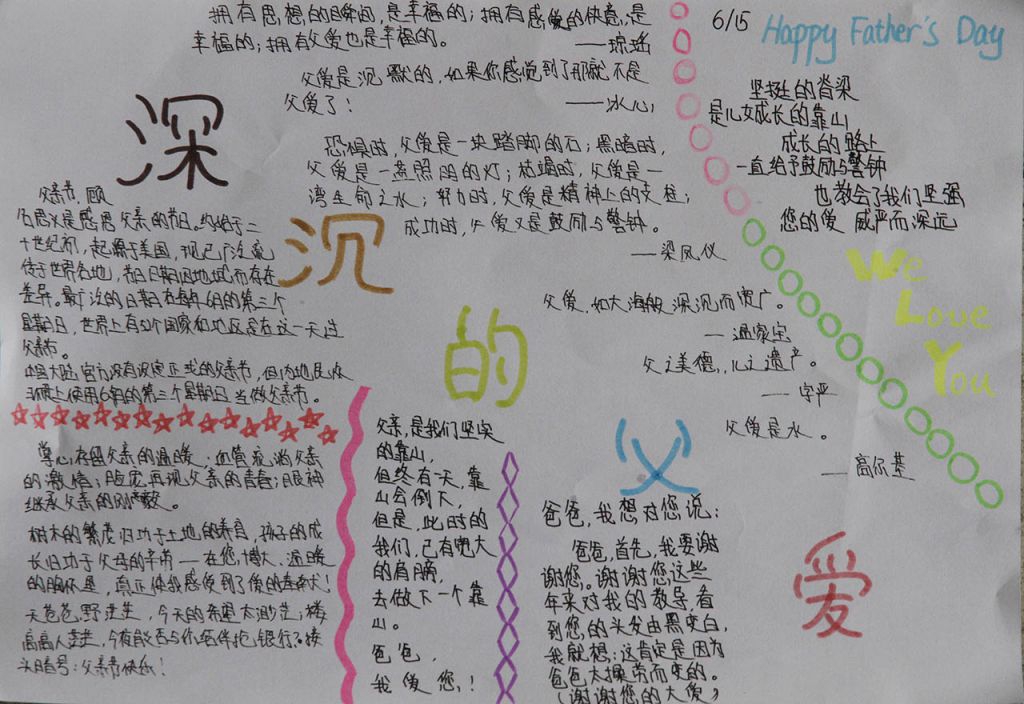 拥有思想的瞬间,是幸福的;拥有感爱的快意,是
幸福的;拥有父爱也是幸福的。
——琼瑶
父爱是沉默的,如果你感觉到了那就不是
父爱了!
——冰心
恐惧时,父爱是一块踏脚的石;黑暗时,
父爱是一盏照明的灯;枯竭时,父爱是一
湾生命之水;努力时,父爱是精神上的支柱;
成功时,父爱又是鼓励与警钟。
——梁凤仪
父爱,如大海般深沉而宽广。
父之美德,儿之遗产。
父爱是水。
——高尔基
6/15
Happy Father's Day
坚挺的脊梁
是儿女成长的靠山
成长的路上
一直给予鼓励与警钟
也教会了我们坚强
您的爱 威严而深远
We
Love
You
深
沉
的
父
爱
父亲节,顾
名思义是感恩父亲的节日。约始于二
十世纪初,起源于美国,现已广泛流
传于世界各地,节日日期因地域而存在
差异。最广泛的日期在每年6月的第三个
星期日,世界上有52个国家和地区是在这一天过
父亲节。
中国大陆官方没有设定正式的父亲节,但内地民众
习惯上使用6月的第三个星期日当做父亲节。
掌心存留父亲的温暖;血管流淌父亲
的激情;脸庞再现父亲的青春;眼神
继承父亲的刚毅。
树木的繁茂归功于土地的养育,孩子的成
长归功于父母的辛劳——在您博大、温暖
的胸怀里,真正使我感受到了爱的
天苍苍,野茫茫,今天的希望太渺茫;楼
高高人茫茫,今夜能否与你结伴抢银行?接
头暗号:父亲节快乐!
父亲,是我们坚实
的靠山,
但终有一天,靠
山会倒下,
但是,此时的
我们,已有宽大
的肩膀,
去做下一个靠
山。
爸爸,
我爱您!
爸爸,我想对您说:
爸爸,首先,我要谢
谢您。谢谢您这些
年来对我的教导,看
到您的头发由黑变白,
我就想:这肯定是因为
爸爸太操劳而变的。
(谢谢您的大爱)